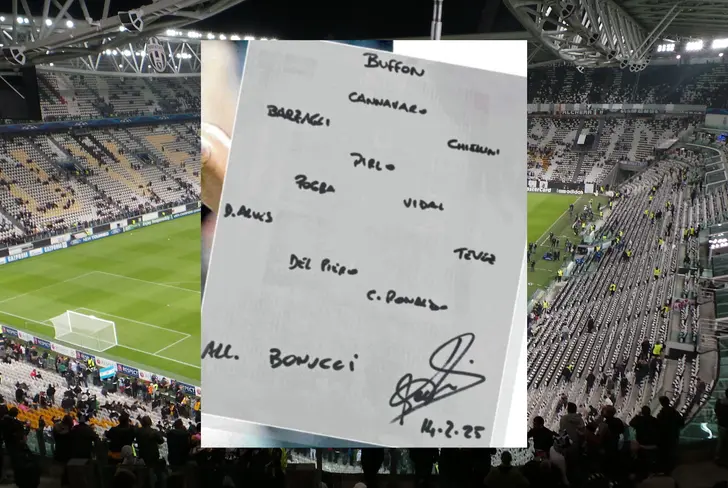 BUFFON
CANNAVARO
BARZAGLI
CHIELLINI
PIRLO
POGBA
VIDAL
D. ALVES
TEVEZ
DEL PIERO
C. RONALDO
ALL. BONUCCI
14.2.25
RESPECT